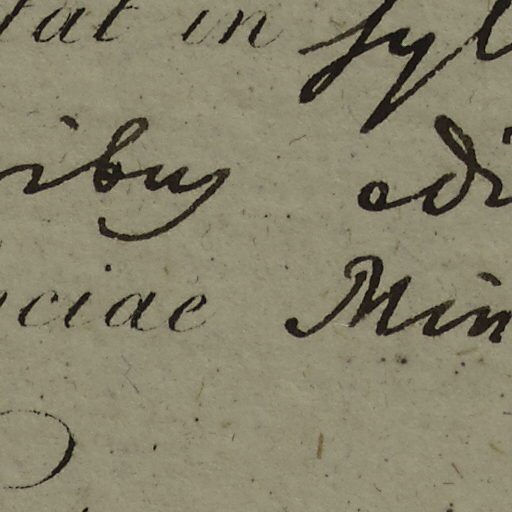 tat in syl
ibus edi
ciae Min